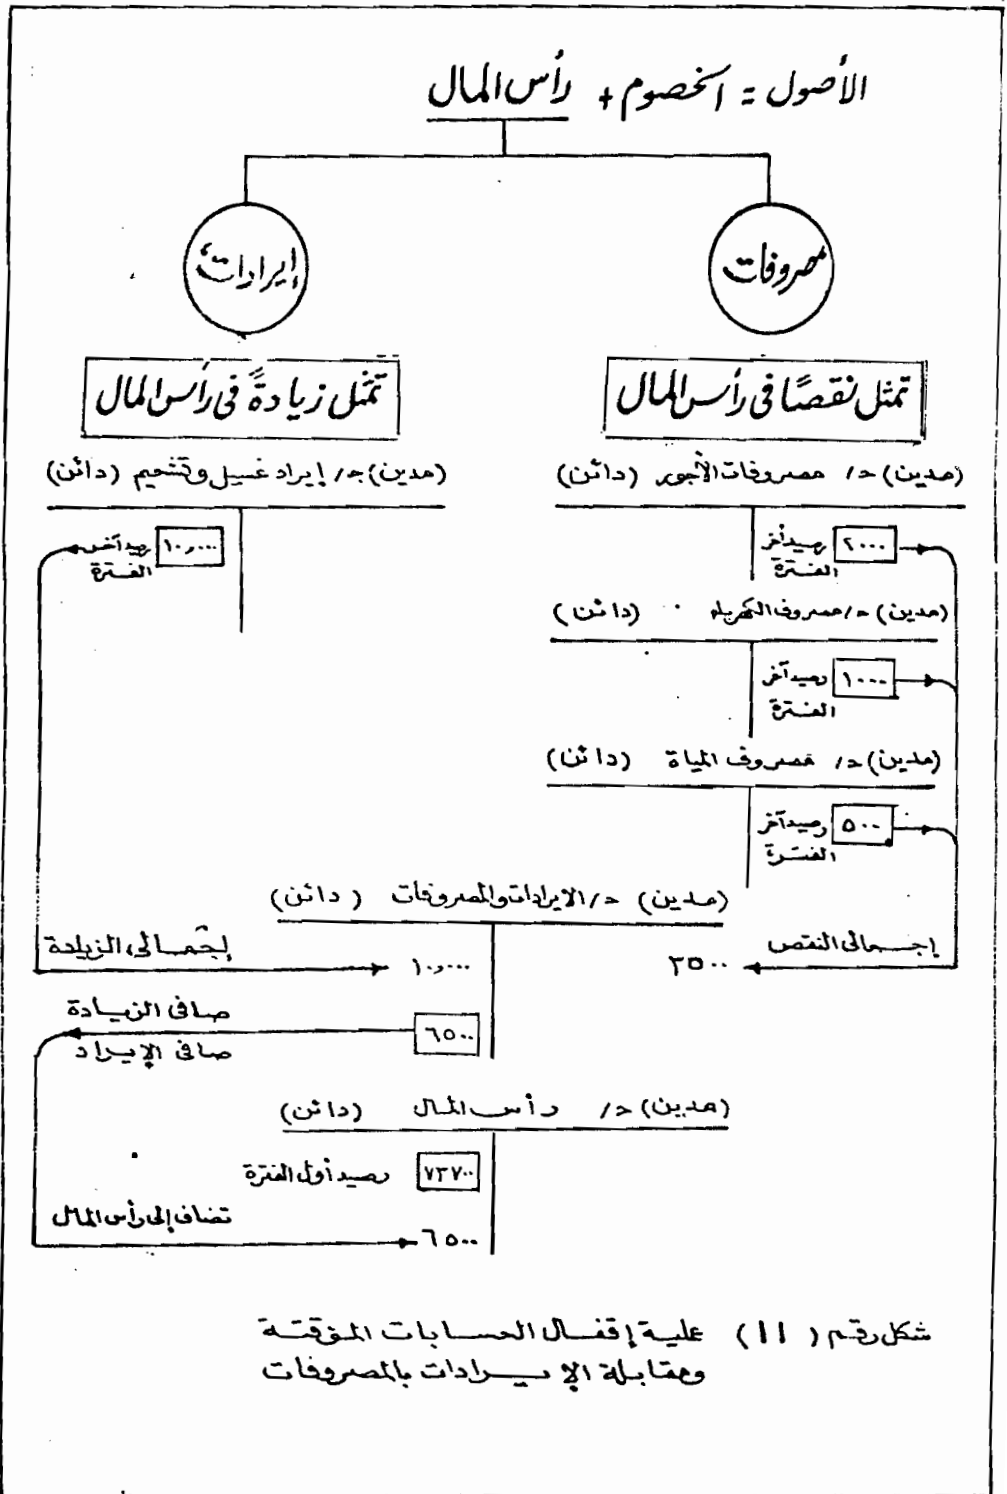 الأصول = الخصوم + رأس المال
مصروفات
إيرادات
تمثل نقصًا فى رأس المال
تمثل زيادةً فى رأس المال
(مدين) حـ/ مصروفات الأجور (دائن)
(مدين) حـ/ إيراد غسيل وتشحيم (دائن)
٢٠٠٠ رصيد آخر
الفترة
١٠,٠٠٠ رصيد آخر
الفترة
(مدين) حـ/ مصروف الكهرباء (دائن)
١٠٠٠ رصيد آخر
الفترة
(مدين) حـ/ مصروف المياة (دائن)
٥٠٠ رصيد آخر
الفترة
(مدين) حـ/ الايرادات والمصروفات (دائن)
إجمالى النقص
٣٥٠٠
١٠,٠٠٠
إجمالى الزيادة
٦٥٠٠
صافى الزيادة
صافى الإيراد
(مدين) حـ/ رأس المال (دائن)
٧٣٧٠٠ رصيد أول الفترة
٦٥٠٠ تضاف إلى رأس المال
شكل رقم (١١) علية إقفال الحسابات المؤقتة
ومقابلة الإيرادات بالمصروفات